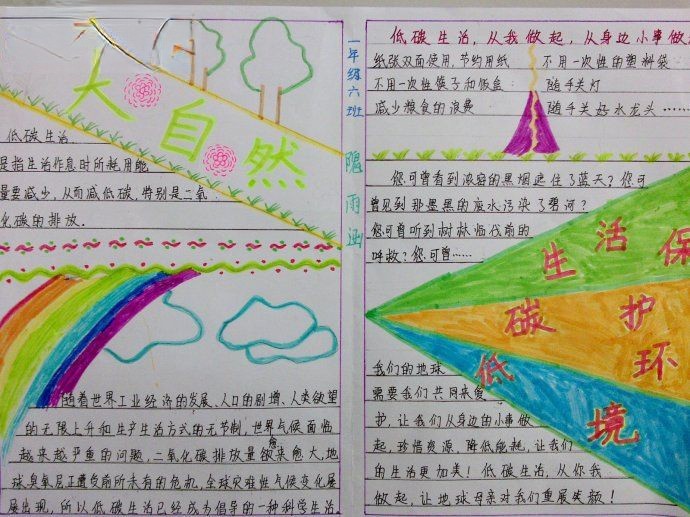 大自然
低碳生活
是指生活作息时所耗用能
量要减少,从而减低碳,特别是二氧
化碳的排放.
随着世界工业经济的发展、人口的剧增、人类欲望
的无限上升和生产生活方式的无节制,世界气候面临
越来越严重的问题,二氧化碳排放量愈来愈大,地
球臭氧层正遭受前所未有的危机,全球灾难性气候变化屡
屡出现,所以低碳生活已经成为倡导的一种科学生活
一年级六班
隗雨涵
低碳生活,从我做起,从身边小事做
纸张双面使用,节约用纸 不用一次性的塑料袋
不用一次性筷子和饭盒 随手关灯
减少粮食的浪费 随手关好水龙头……
您可曾看到浓密的黑烟遮住了蓝天?您可
曾见到那墨黑的废水污染了碧河?
您可曾听到树林临伐前的
呼救?您可曾……
生活保
碳护
低环
境
我们的地球
需要我们共同来爱
护,让我们从身边的小事做
起,珍惜资源,降低能耗,让我们
的生活更加美!低碳生活,从你我
做起,让地球母亲对我们重展笑颜!